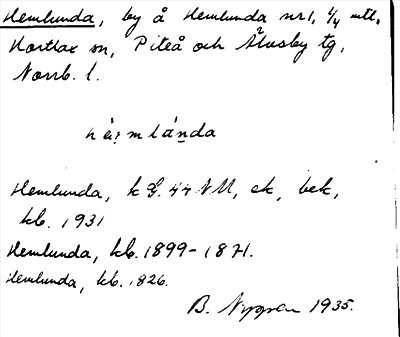 Hemlunda, by å Hemlunda nr 1, 1/4 mtl,
Hortlax sn, Piteå och Älvsby tg,
Norrb. l.
hèm lúnda
Hemlunda, k G. 44 NU, ek, bek,
kb. 1931
Hemlunda, kb. 1899-1871.
Hemlunda, kb. 1826.
B. 1935.